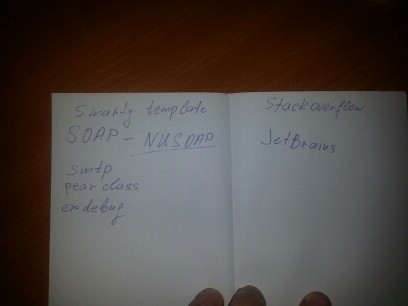 Smarty template
SOAP - NUSOAP
smtp
pear class
exdebug
Stackoverflow
JetBrains